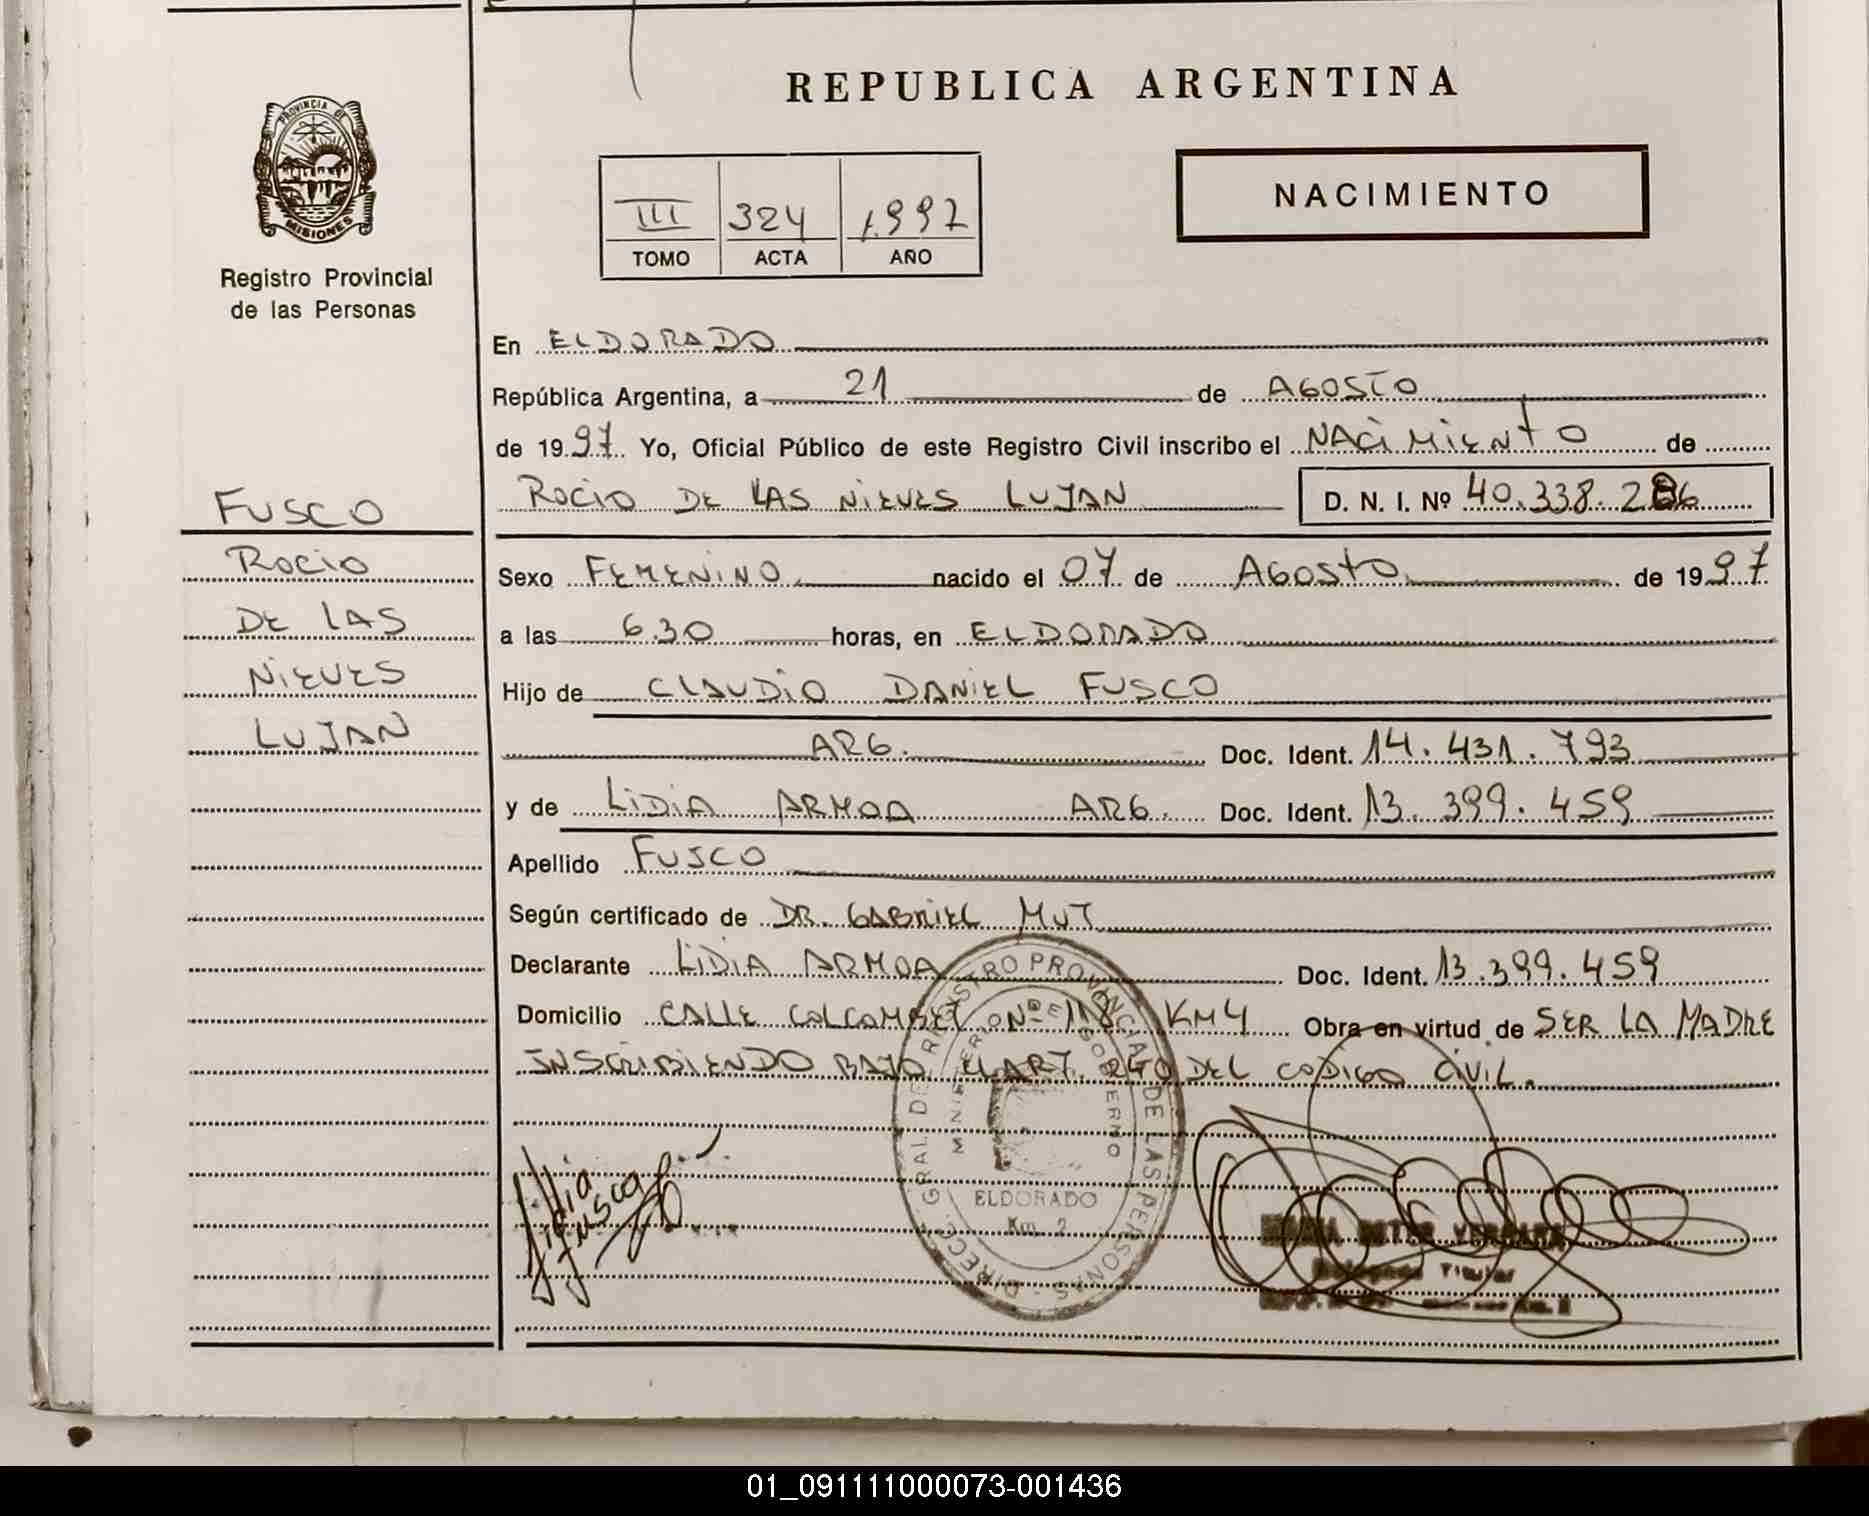 REPUBLICA ARGENTINA
PROVINCIA DE
MISIONES
Registro Provincial
de las Personas
III 324 1.997
TOMO ACTA AÑO
NACIMIENTO
En ELDORADO
República Argentina, a 21 de AGOSTO
de 1997 Yo, Oficial Público de este Registro Civil inscribo el NACIMIENTO de
ROCIO DE LAS NIEVES LUJAN D. N. I. Nº 40.338.286
FUSCO
ROCIO
DE LAS
NIEVES
LUJAN
Sexo FEMENINO nacido el 07 de AGOSTO de 1997
a las 6.30 horas, en ELDORADO
Hijo de CLAUDIO DANIEL FUSCO
ARG. Doc. Ident. 14.431.793
y de LIDIA ARMOA ARG. Doc. Ident. 13.399.459
Apellido FUSCO
Según certificado de DR. GABRIEL MUT
Declarante LIDIA ARMOA Doc. Ident. 13.399.459
Domicilio CALLE COLCOMBET Nº 118 KM 4 Obra en virtud de SER LA MADRE
INSCRIBIENDO BAJO EL ART. 240 DEL CODIGO CIVIL.
DIRECC. GRAL. DE REGISTRO PROVINCIAL DE LAS PERSONAS
MINISTERIO DE GOBIERNO
ELDORADO
Km 2
Lidia
Fusco
Titular
01_091111000073-001436